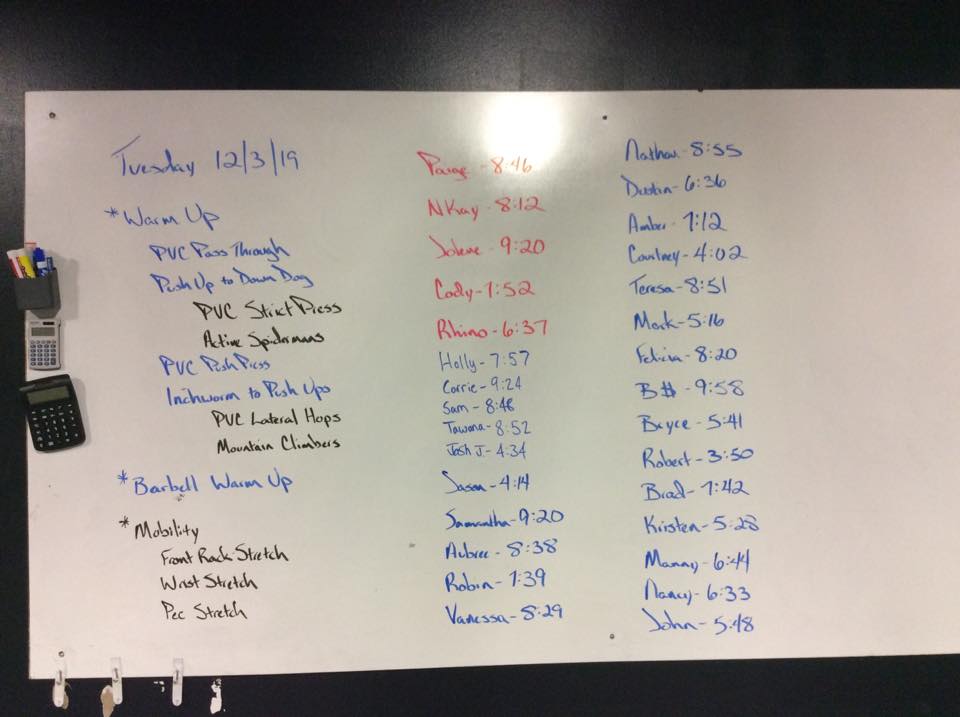 Tuesday 12/3/19
* Warm Up
PVC Pass Through
Push Up to Down Dog
PVC Strict Press
Active Spidermans
PVC Push Press
Inchworm to Push Ups
PVC Lateral Hops
Mountain Climbers
* Barbell Warm Up
* Mobility
Front Rack Stretch
Wrist Stretch
Pec Stretch
Paige - 8:46
NKay - 8:12
Jolene - 9:20
Cody - 7:52
Rhino - 6:37
Holly - 7:57
Corrie - 9:24
Sam - 8:48
Tawana - 8:52
Josh J. - 4:34
Jason - 4:14
Samantha - 9:20
Aubree - 8:38
Robin - 7:39
Vanessa - 8:29
Nathan - 8:55
Dustin - 6:36
Amber - 7:12
Courtney - 4:02
Teresa - 8:51
Mark - 5:16
Felicia - 8:20
B$ - 9:58
Bryce - 5:41
Robert - 3:50
Brad - 7:42
Kristen - 5:28
Manny - 6:44
Nancy - 6:33
John - 5:48